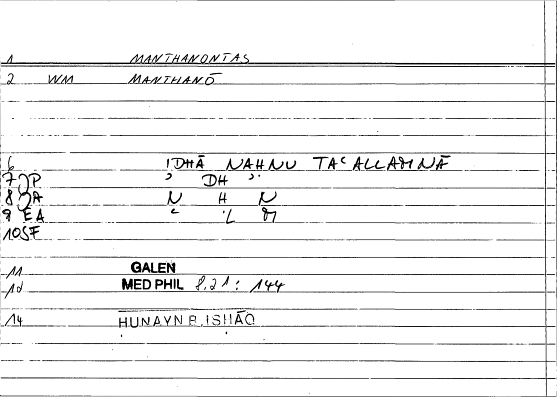 1 MANTHANONTAS
2 WM MANTHANŌ
6 'IDHĀ NAḤNU TAʿALLAMNĀ
7 JP ʾ DH ʾ
8 JA N Ḥ N
9 EA ʿ L M
10 SF
11 GALEN
12 MED PHIL 8,21 : 144
14 HUNAYN B. ISḤĀQ